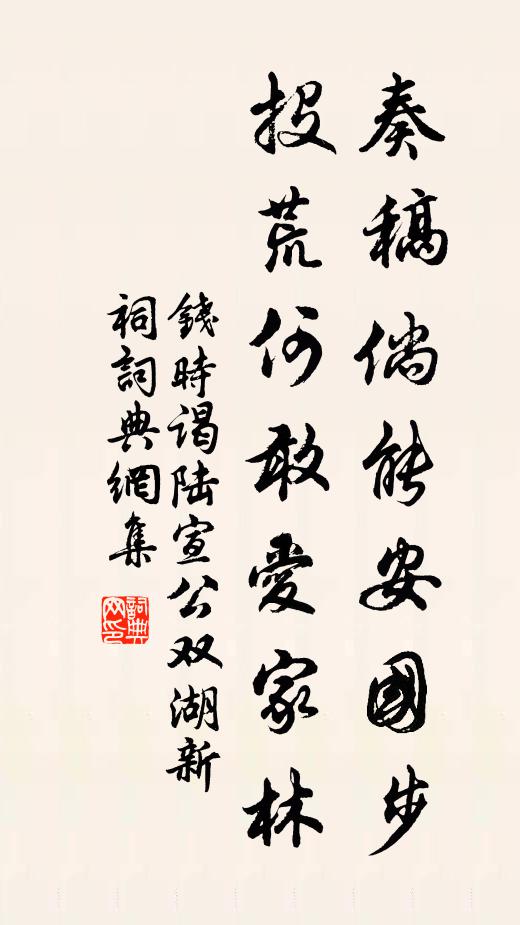 奏稿倘能安國步
投荒何敢愛家林
錢時谒陆宣公双湖新
祠詞典網集
詞典
网印